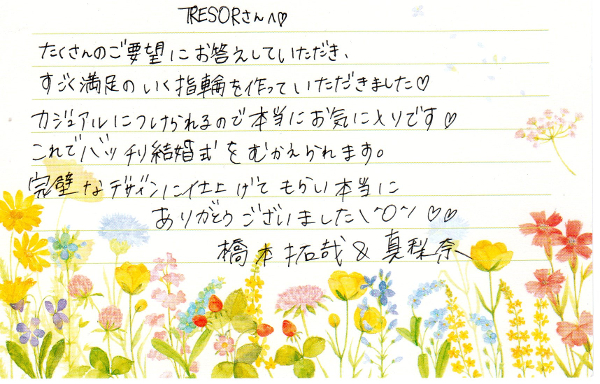 TRESORさんへ♡
たくさんのご要望にお答えしていただき、
すごく満足のいく指輪を作っていただきました♡
カジュアルにつけられるので本当にお気に入りです♡
これでバッチリ結婚式をむかえられます。
完璧なデザインに仕上げてもらい本当に
ありがとうございました\^o^/ ♡♡
橋本拓哉&真梨奈